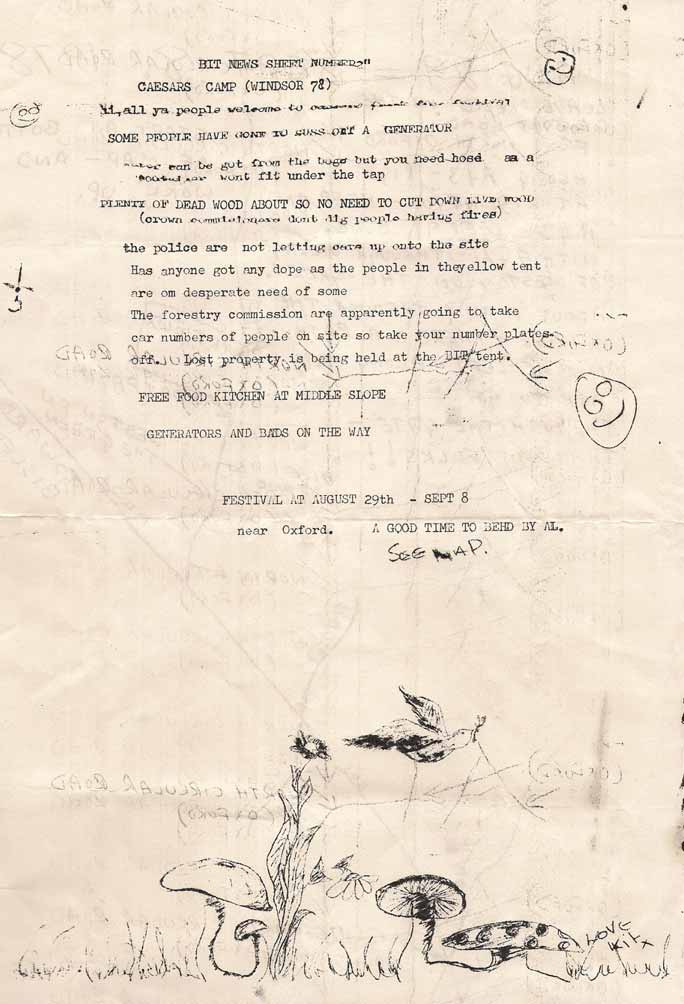 BIT NEWS SHEET NUMBER
CAESARS CAMP (WINDSOR 78)
hi,all ya people welcome to free festival
SOME PEOPLE HAVE GONE TO SUSS OUT A GENERATOR
water can be got from the bogs but you need hose as a
wont fit under the tap
PLENTY OF DEAD WOOD ABOUT SO NO NEED TO CUT DOWN LIVE WOOD
(crown commisioners dont dig people having fires)
the police are not letting cars up onto the site
Has anyone got any dope as the people in theyellow tent
are om desperate need of some
The forestry commission are apparently going to take
car numbers of people on site so take your number plates
off. Lost property is being held at the BIT tent.
FREE FOOD KITCHEN AT MIDDLE SLOPE
GENERATORS AND BADS ON THE WAY
FESTIVAL AT AUGUST 29th - SEPT 8
near Oxford. A GOOD TIME TO BEHD BY AL.
SEE MAP.
LOVE
KIT X